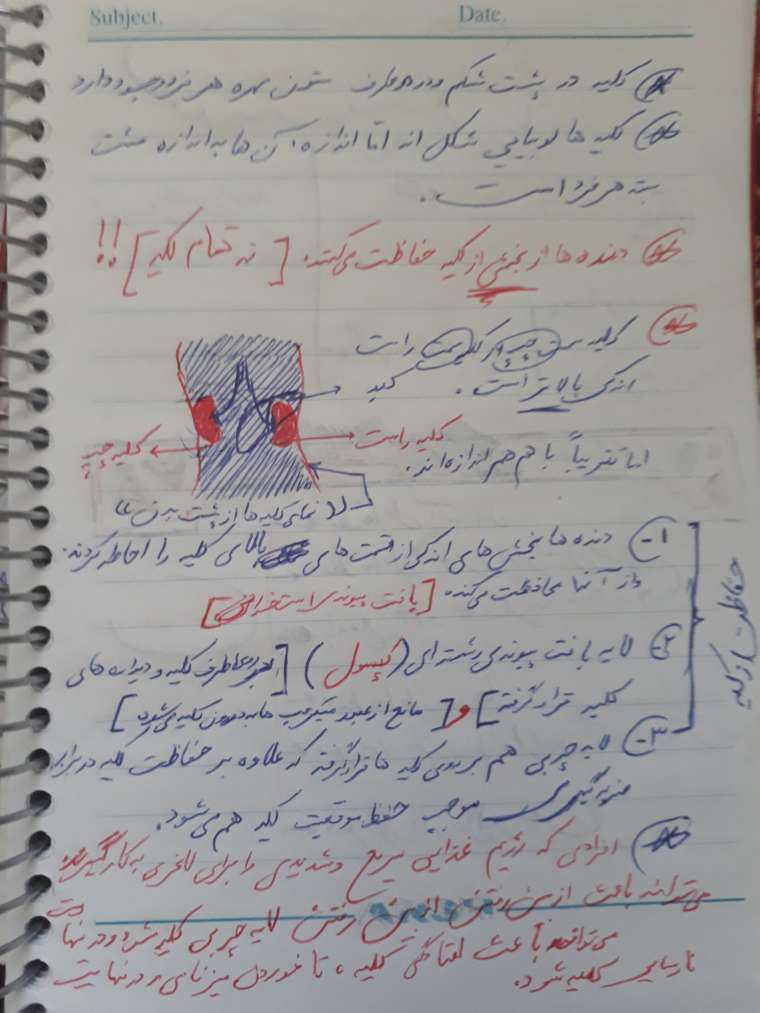 Subject. Date.
کلیه در پشت شکم و در دو طرف ستون مهره هر فرد وجود دارد
کلیه ها لوبیایی شکل اند امّا اندازه آن ها به اندازه مشت
بسته هر فرد است.
دنده ها از بخشی از کلیه حفاظت می کنند. [نه تمام کلیه]!!
کلیه سمت چپ از کلیه سمت راست
اندکی بالاتر است.
کبد
کلیه راست
کلیه چپ
اما تقریباً با هم هم اندازه اند.
«نمای کلیه ها از پشت بدن»
حفاظت از کلیه
۱- دنده ها بخش های اندکی از قسمت های بالای کلیه را احاطه کردند
و از آنها محافظت می کند. [بافت پیوندی استخوانی]
۲- لایه بافت پیوندی رشته ای (کپسول) [اطراف کلیه و دیواره های
کلیه قرار گرفته] و [مانع از عبور میکروب ها به درون کلیه می شود]
۳- لایه چربی هم بر روی کلیه ها قرار گرفته که علاوه بر حفاظت کلیه در برابر
ضربه گیری موجب حفظ موقعیت کلیه هم می شود.
افرادی که رژیم غذایی سریع و شدیدی را برای لاغری به کار گیرند
می توانند باعث از بین رفتن لایه چربی کلیه شود و در نهایت
می تواند باعث افتادگی کلیه، تا خوردن میزنای و در نهایت
نارسایی کلیه شود.